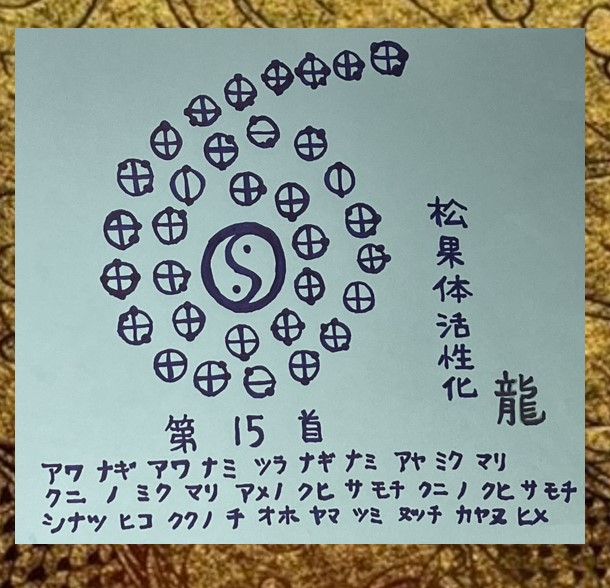 松果体活性化
龍
第 15 首
アワ ナギ アワ ナミ ツラ ナギ ナミ アヤ ミク マリ
クニ ノ ミク マリ アメノ クヒ サ モチ クニ ノ クヒ サ モチ
シナツ ヒコ ククノ チ オホ ヤマ ツミ ヌッチ カヤヌ ヒメ